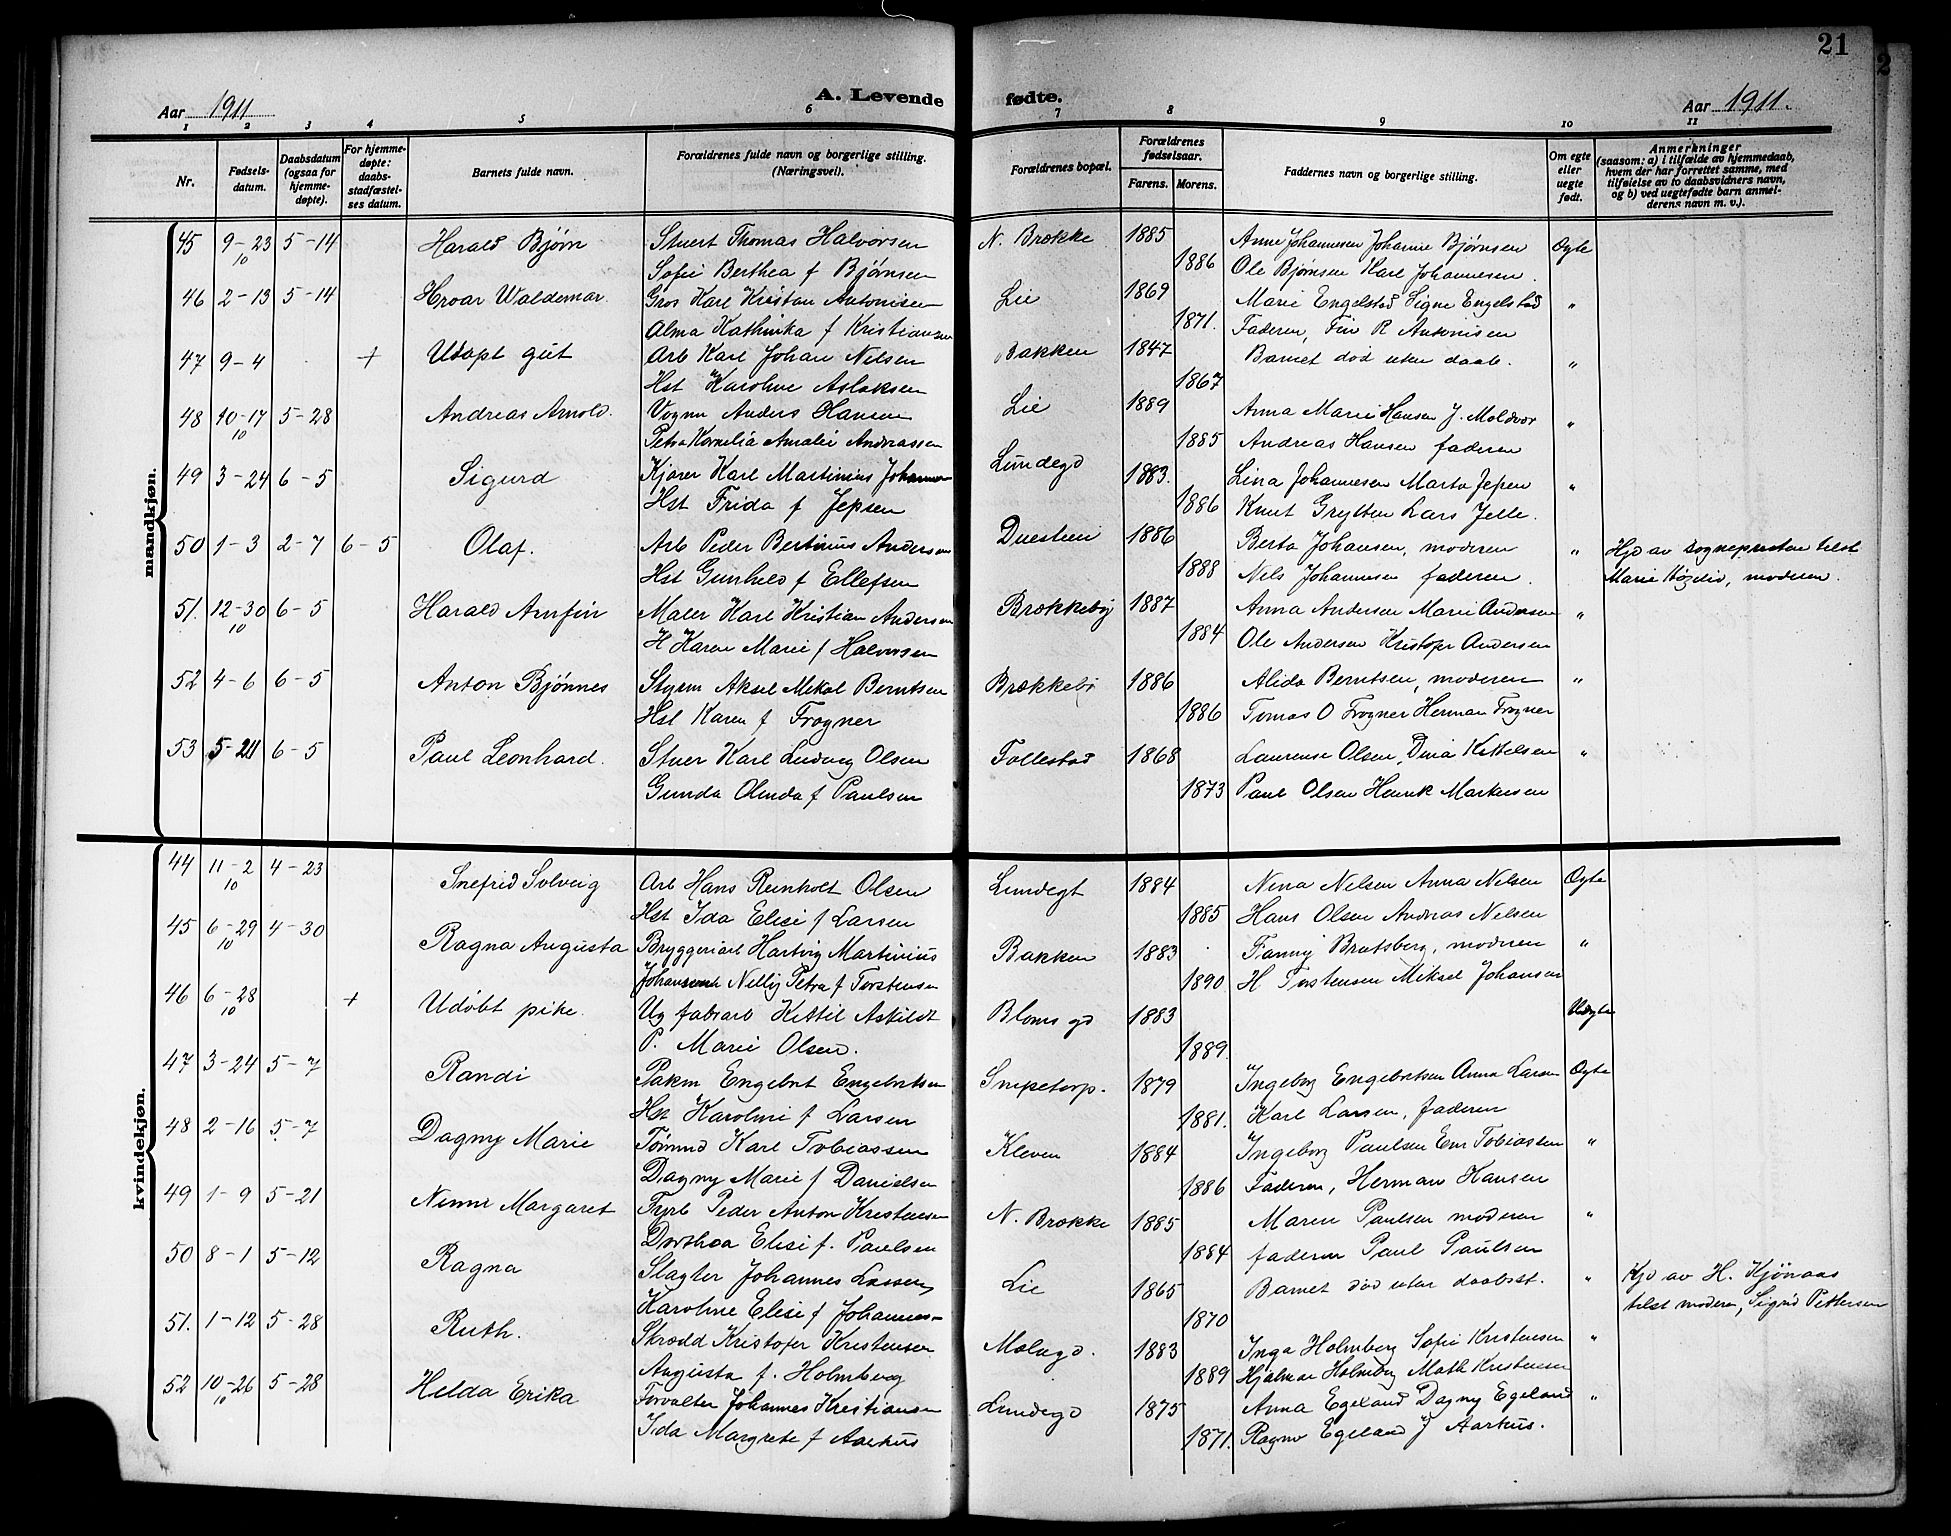 21
Aar 1911 A. Levende fødte. Aar 1911.
1 2 3 4 5 6 7 8 9 10 11
Nr. Fødselsdatum. Daabsdatum (ogsaa for hjemmedøpte). For hjemmedøpte: daabsstadfæstelses datum. Barnets fulde navn. Forældrenes fulde navn og borgerlige stilling. (Næringsvei). Forældrenes bopæl. Forældrenes fødselsaar. Farens. Morens. Faddernes navn og borgerlige stilling. Om egte eller uegte født. Anmerkninger (saasom: a) i tilfælde av hjemmedaab, hvem der har forrettet samme, med tilføielse av to daabsvidners navn, og b) ved uegtefødte barn anmelderens navn m. v.).
mandkjøn.
45 9-23/10 5-14 Harald Bjørn Stuert Thomas Halvorsen N. Brække 1885 Anne Johannesen Johanne Bjørnsen Egte
Sofie Berthea f Bjørnsen 1886 Ole Bjørnsen Karl Johannesen.
46 2-13 5-14 Hroar Waldemar. Gros Karl Kristian Antonisen Lie 1869 Marie Engelstad Signe Engelstad "
Alma Kathinka f Kristiansen 1871. Faderen, Fin R Antonisen
47 9-4 + Udøpt gut Arb Karl Johan Nilsen Bakken 1847 Barnet død uten daab. "
Hst Karoline Aslaksen 1867
48 10-17/10 5-28 Andreas Arnold. Vognm Anders Hansen Lie 1889 Anna Marie Hansen J. Moldvær "
Petra Kornelia Amalie Andreassen 1885 Andreas Hansen faderen
49 3-24 6-5 Sigurd Kjører Karl Martinius Johannes Lundegd 1883. Lina Johannesen Marta Jepsen "
Hst Frida f Jepsen 1886 Knut Grytten Lars Jelle.
50 1-3 2-7 6-5 Olaf. Arb Peder Bertinius Andersen Duestien 1886 Berta Johansen, moderen " Hjd av sogneprester tilst
Hst Gunhild f Ellefsen 1888 Nels Johannesen faderen. Marie Høgelid, moderen.
51. 12-30/10 6-5 Harald Arnfin Maler Karl Kristian Andersen Brækkebÿ 1887 Anna Andersen Marie Andersen "
H Karen Marie f Halvorsen 1884 Ole Andersen Kristofer Andersen
52 4-6 6-5 Anton Bjønnes Styrm Aksel Mikal Berntsen Brækkeby 1886 Alida Berntsen, moderen "
Hst Karen f Frogner 1886 Tomas O Frogner Herman Frogner
53 5-21 6-5 Paul Leonhard. Stuer Karl Ludvig Olsen Follestad 1868 Laurense Olsen, Dina Kittelsen "
Gunda Olinda f Paulsen 1873 Paul Olsen Henrik Markussen
kvindekjøn.
44 11-2/10 4-23 Snefrid Solveig Arb Hans Reinholt Olsen Lundegt 1884 Nina Nelsen Anna Nelsen Egte
Hst Ida Elise f Larsen 1885 Hans Olsen Andreas Nelsen
45 6-29/10 4-30 Ragna Augusta Bryggeriarb Hartvig Martinius Bakken 1883 Fanny Bratsberg, moderen "
Johansen Nelly Petra f Torstensen 1890 H Torstensen Mikael Johansen
46 6-28/10 + Udøbt pike. Ug fabrarb Kittil Askildt Bloms gd 1883 Uegte
P. Marie Olsen. 1889.
47 3-24 5-7 Randi Pakm Engebret Engebretsen Snipetorp. 1879 Ingeborg Engebretsen Anna Larsen Egte
Hst Karoline f Larsen 1881. Karl Larsen, faderen
48 2-16 5-7 Dagny Marie Tømmd Karl Tobiassen Kleven 1884 Ingeborg Paulsen Emr Tobiassen "
Dagny Marie f Danielsen 1886 Faderen, Herman Hansen
49 1-9 5-21 Nimmi Margaret Fyrb Peder Anton Kristensen N. Brække 1885 Maren Paulsen moderen "
Dorthea Elise f. Paulsen 1884 faderen Paul Paulsen
50 8-1 5-12 Ragna Slagter Johannes Larsen Lie 1865 Barnet død uten daabsst. " Hjd av H. Kjønaas
Karoline Elise f Johannes- 1870 tilst moderen, Sigrid Pettersen
51. 1-12 5-28 Ruth. Skrædd Kristofer Kristensen Molagd. 1883 Inga Holmberg Sofie Kristensen "
Augusta f. Holmberg 1889 Hjalmar Holmberg Math Kristensen
52 10-26/10 5-28 Helda Erika Forvalter Johannes Kristiansen Lundegd 1875 Anna Egeland Dagny Egeland "
Ida Margrete f Aarhus 1871. Ragna Egeland J Aarhus.